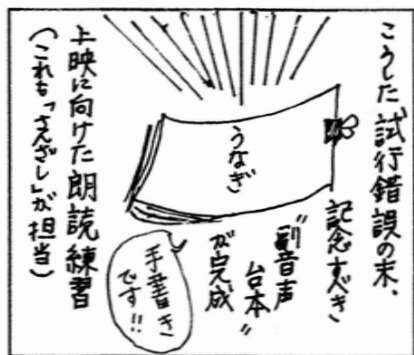 こうした試行錯誤の末、
記念すべき
“副音声
台本”
が完成
うなぎ
手書き
です!!
上映に向けた朗読練習
(これも「さえざし」が担当)